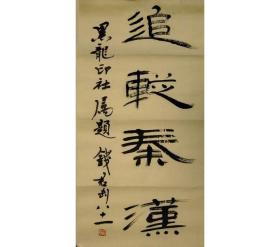 追踪秦漢
黑龍印社屬題 錢君匋八十一